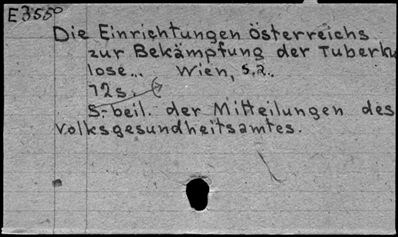 E3550
Die Einrichtungen Österreichs
zur Bekämpfung der Tuberku
lose... Wien, s.a..
72s.
S.-beil. der Mitteilungen des
Volksgesundheitsamtes.